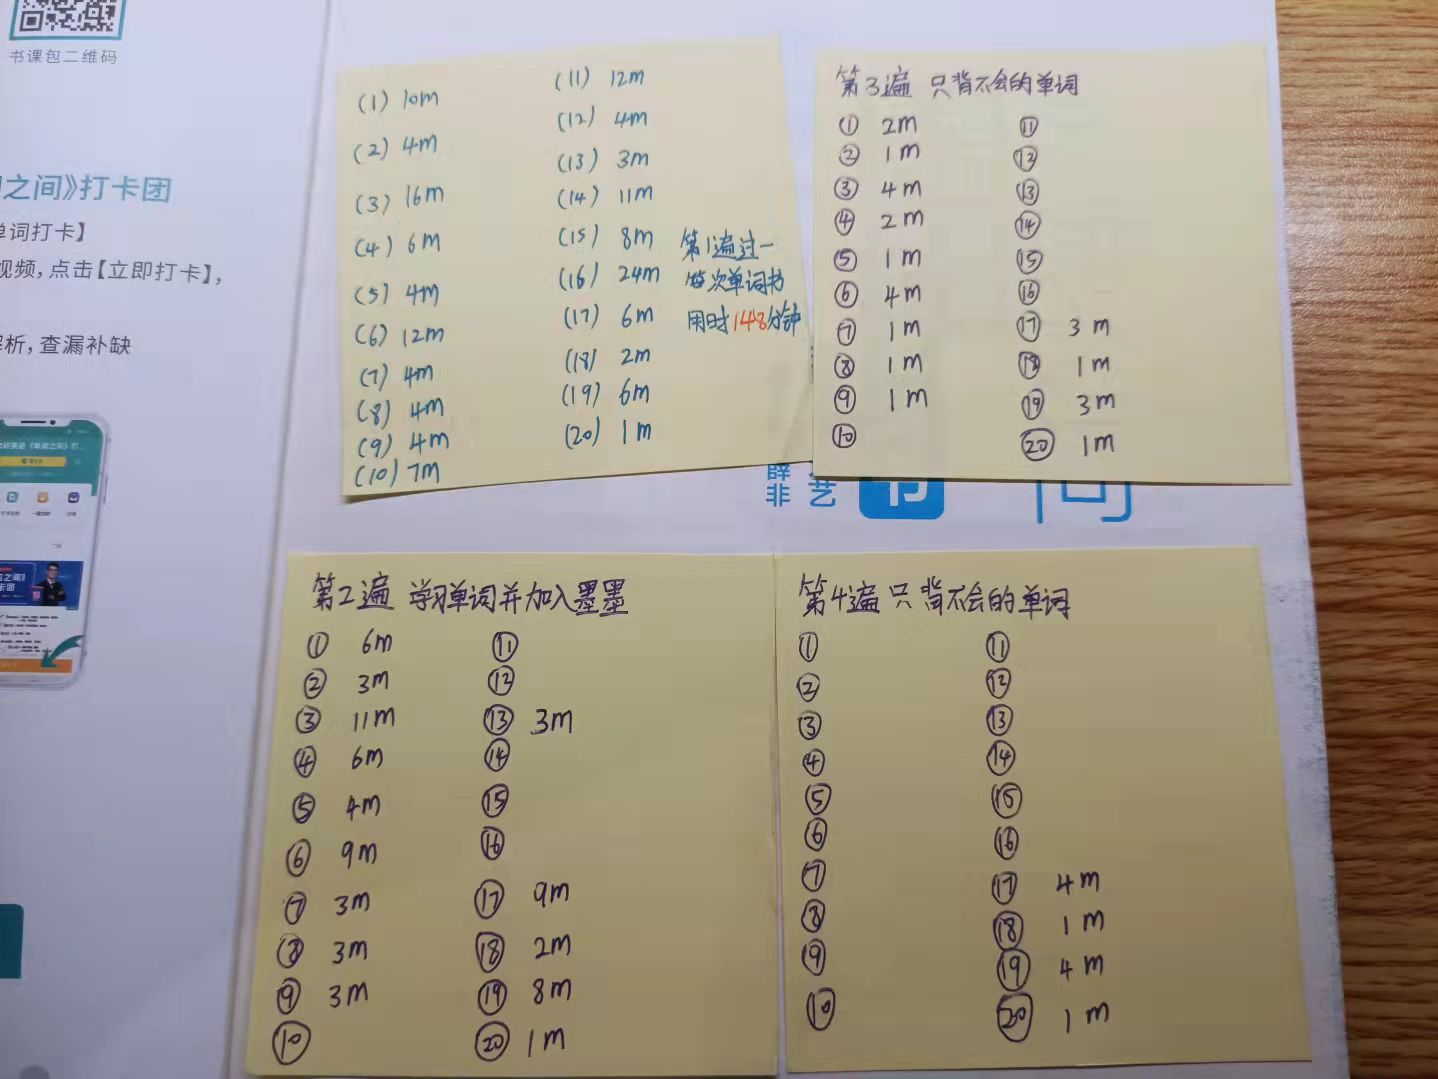 书课包二维码
之间》打卡团
单词打卡】
视频，点击【立即打卡】，
析，查漏补缺
(1) 10m
(2) 4m
(3) 16m
(4) 6m
(5) 4m
(6) 12m
(7) 4m
(8) 4m
(9) 4m
(10) 7m
(11) 12m
(12) 4m
(13) 3m
(14) 11m
(15) 8m
(16) 24m
(17) 6m
(18) 2m
(19) 6m
(20) 1m
第1遍过一
单词书
用时148分钟
第3遍 只背不会的单词
① 2m
② 1m
③ 4m
④ 2m
⑤ 1m
⑥ 4m
⑦ 1m
⑧ 1m
⑨ 1m
⑩
⑪
⑫
⑬
⑭
⑮
⑯
⑰ 3m
⑱ 1m
⑲ 3m
⑳ 1m
薛非
艺
第2遍 学习单词并加入墨墨
① 6m
② 3m
③ 11m
④ 6m
⑤ 4m
⑥ 9m
⑦ 3m
⑧ 3m
⑨ 3m
⑩
⑪
⑫
⑬ 3m
⑭
⑮
⑯
⑰ 9m
⑱ 2m
⑲ 8m
⑳ 1m
第4遍 只背不会的单词
①
②
③
④
⑤
⑥
⑦
⑧
⑨
⑩
⑪
⑫
⑬
⑭
⑮
⑯
⑰ 4m
⑱ 1m
⑲ 4m
⑳ 1m